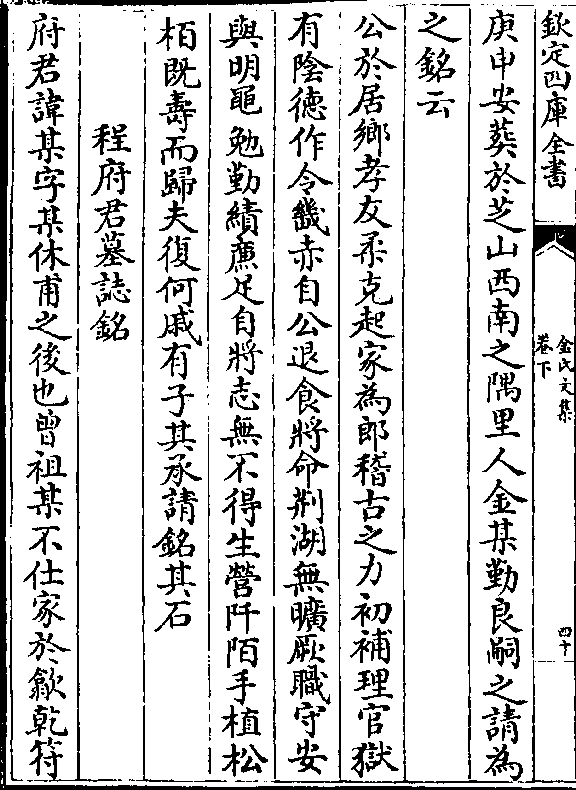 欽定四庫全書
金氏文集
卷下
四十
庚申安葬於芝山西南之隅里人金某勤良嗣之請為
之銘云
公於居鄉孝友柔克起家為郎稽古之力初補理官獄
有陰德作令畿赤自公退食將命荆湖無曠厥職守安
與明黽勉勤績廉足自將志無不得生營阡陌手植松
栢既壽而歸夫復何戚有子其承請銘其石
程府君墓誌銘
府君諱某字某休甫之後也曾祖某不仕家於歙乾符